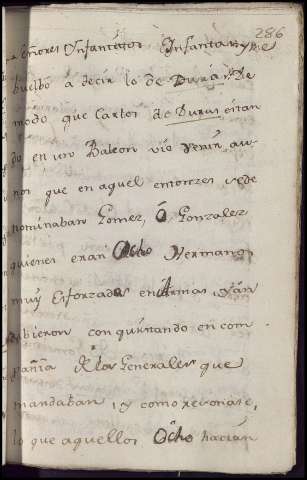 286
Señores Ynfantinos Infantas, y he
buelto a decir lo de Duràn. De
modo que Carlos de Duràs estan
do en un Balcon vio venir, au-
nos que en aquel entonzes se de
nominaban Gomez, ó Gonzalez
quienes eran Ocho Hermanos
muy esforzados en Armas, y an
dubieron conquistando en com
pañia de los Generales que
mandaban, y como
lo que aquellos Ocho hacian